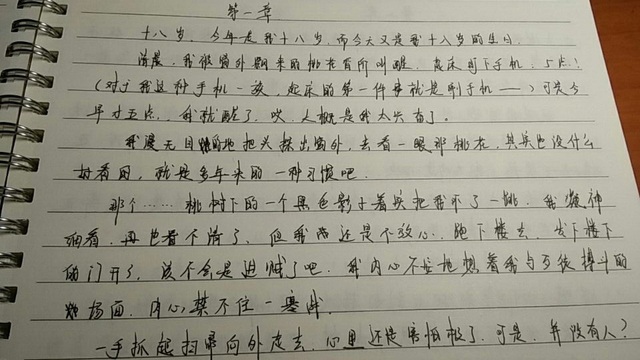 第一章
十八岁，今年是我十八岁，而今天又是我十八岁的生日。
清晨，我被窗外飘来的桃花香所叫醒，起床刷下手机，5点！
（对于我这种手机一族，起床的第一件事就是刷手机——）可是今
早才五点，我就醒了，唉，大概是我太兴奋了。
我漫无目的地把头探出窗外，去看一眼那桃花，其实也没什么
好看的，就是多年来的一种习惯吧。
那个……桃树下的一个黑色影子着实把我吓了一跳，我定神
细看，再也看不清了，但我内还是不放心，跑下楼去，楼下
的门开了，该不会是进贼了吧，我内心不安地想着我与歹徒搏斗的
场面，内心禁不住一寒战。
一手抓起扫帚向外走去，心里还是害怕极了，可是，并没有人？